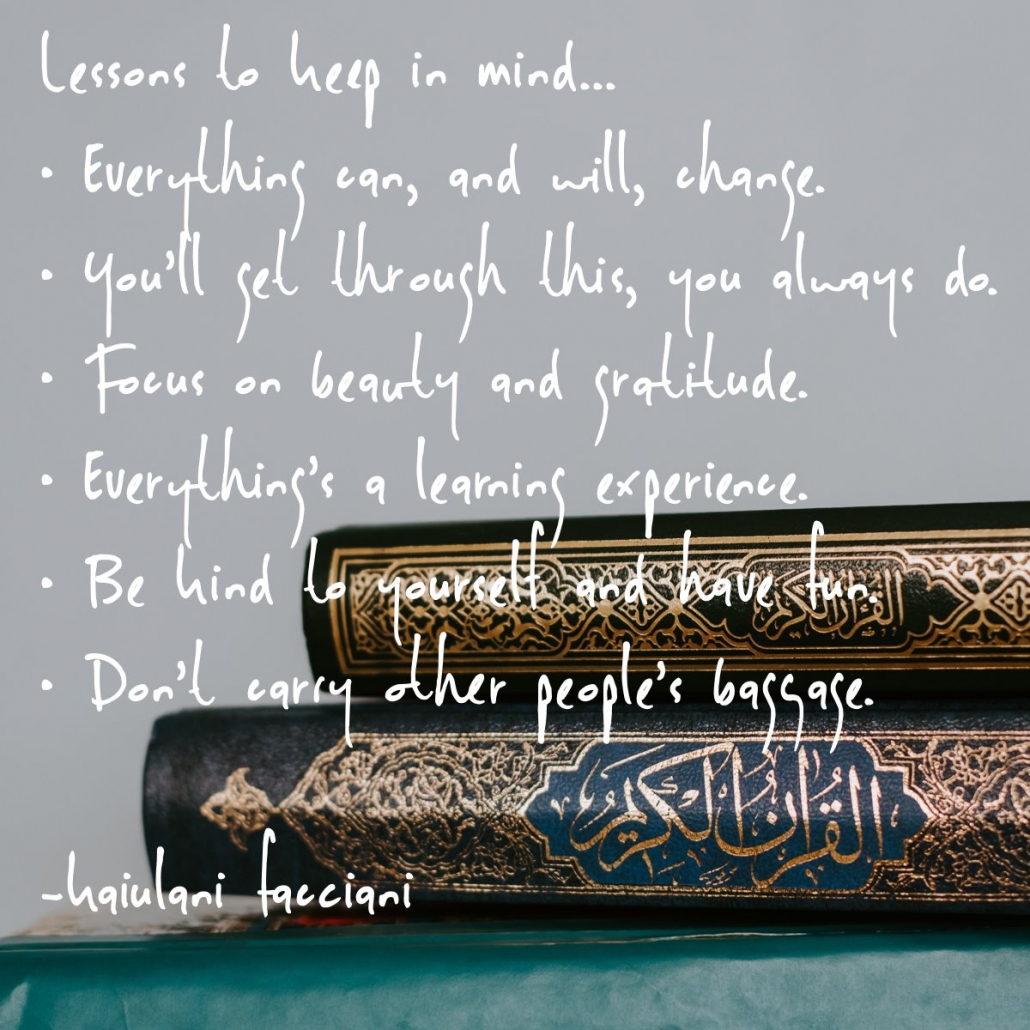 Lessons to keep in mind...
• Everything can, and will, change.
• You'll get through this, you always do.
• Focus on beauty and gratitude.
• Everything's a learning experience.
• Be kind to yourself and have fun.
• Don't carry other people's baggage.
-kaiulani facciani
القرآن الكريم
القرآن الكريم